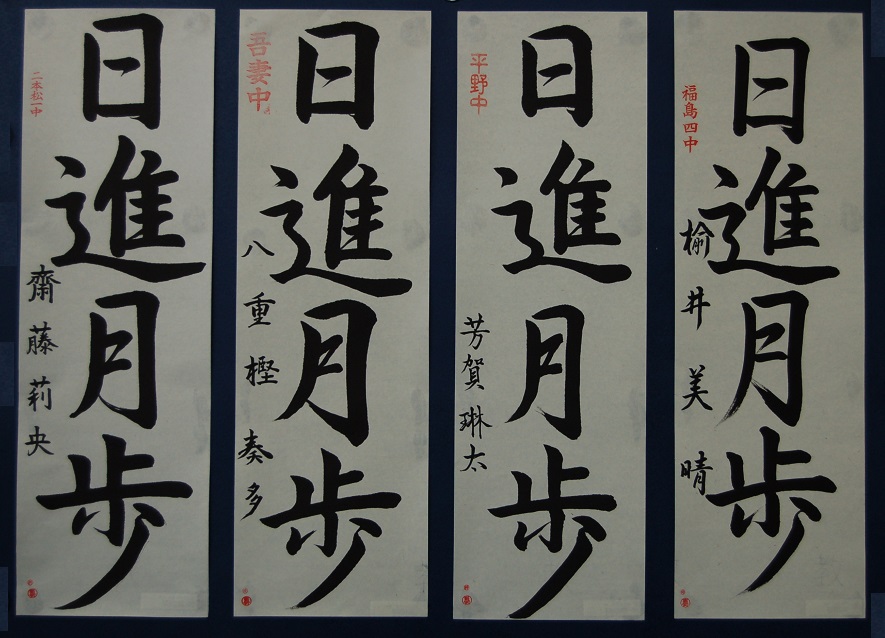 日進月歩
二本松一中
齋藤莉央
日進月歩
吾妻中
八重樫奏多
日進月歩
平野中
芳賀琳太
日進月歩
福島四中
榆井美晴